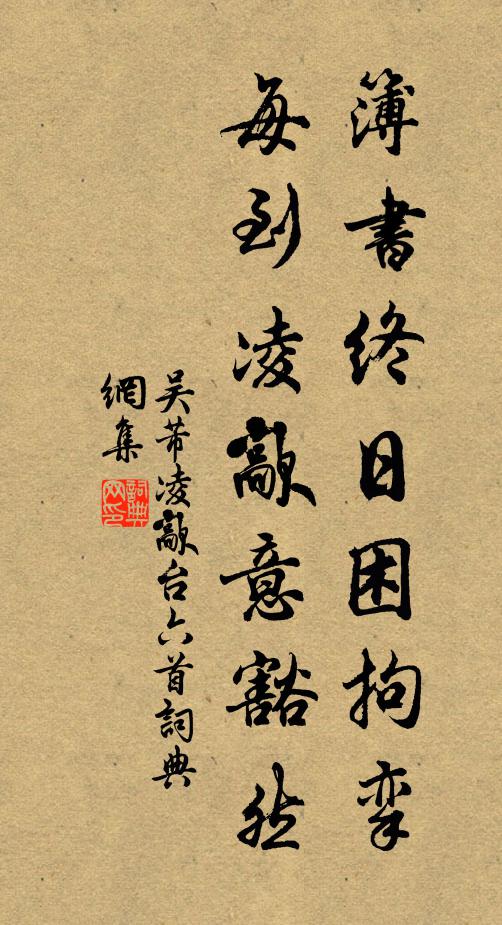 簿書終日困拘挛
每到凌歊意豁然
吴芾凌歊台六首詞典
網集
詞典網印